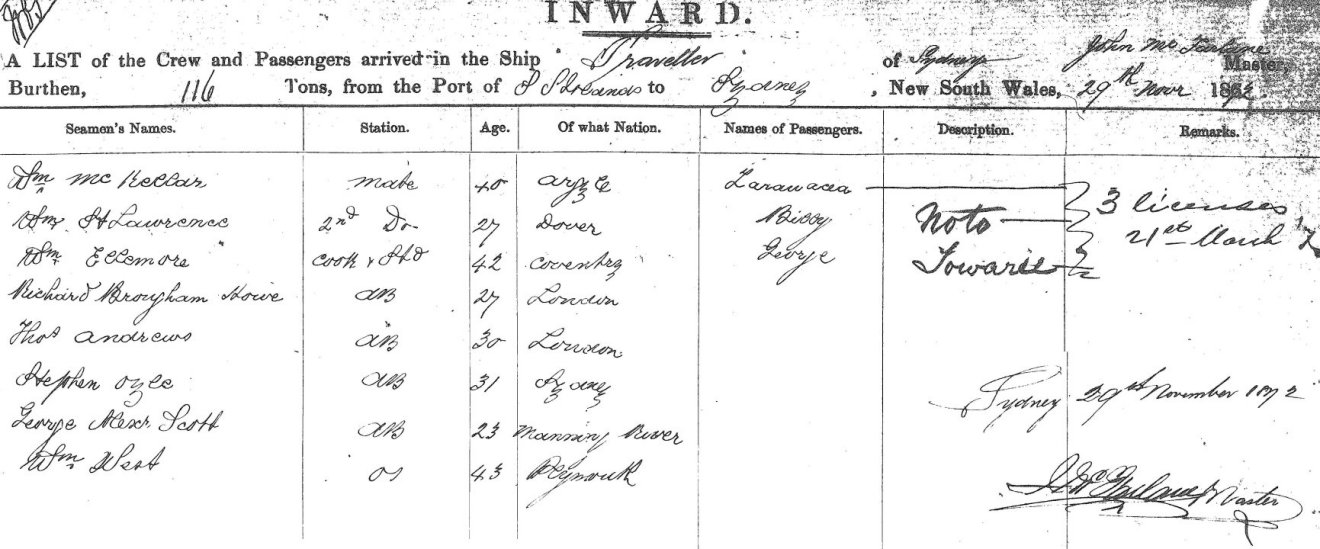 INWARD.
John Mc Farlane
A LIST of the Crew and Passengers arrived in the Ship Traveller of Sydney Master,
Burthen, 116 Tons, from the Port of S S Islands to Sydney, New South Wales, 29th Novr 1872
Seamen's Names. Station. Age. Of what Nation. Names of Passengers. Description. Remarks.
Wm Mc Kellar mate 40 Argyle
Wm St Lawrence 2nd Do 27 Dover Bibby Noto 3 licenses
Wm Ellemore cook & Std 42 Coventry George Towarie 21st March
Richard Brougham Howe AB 27 London
Thos Andrews AB 30 London
Stephen AB 31 Sydney
Sydney 29th November 1872
George Alexr Scott AB 23 Manning River
Wm West OS 43 Plymouth
Master